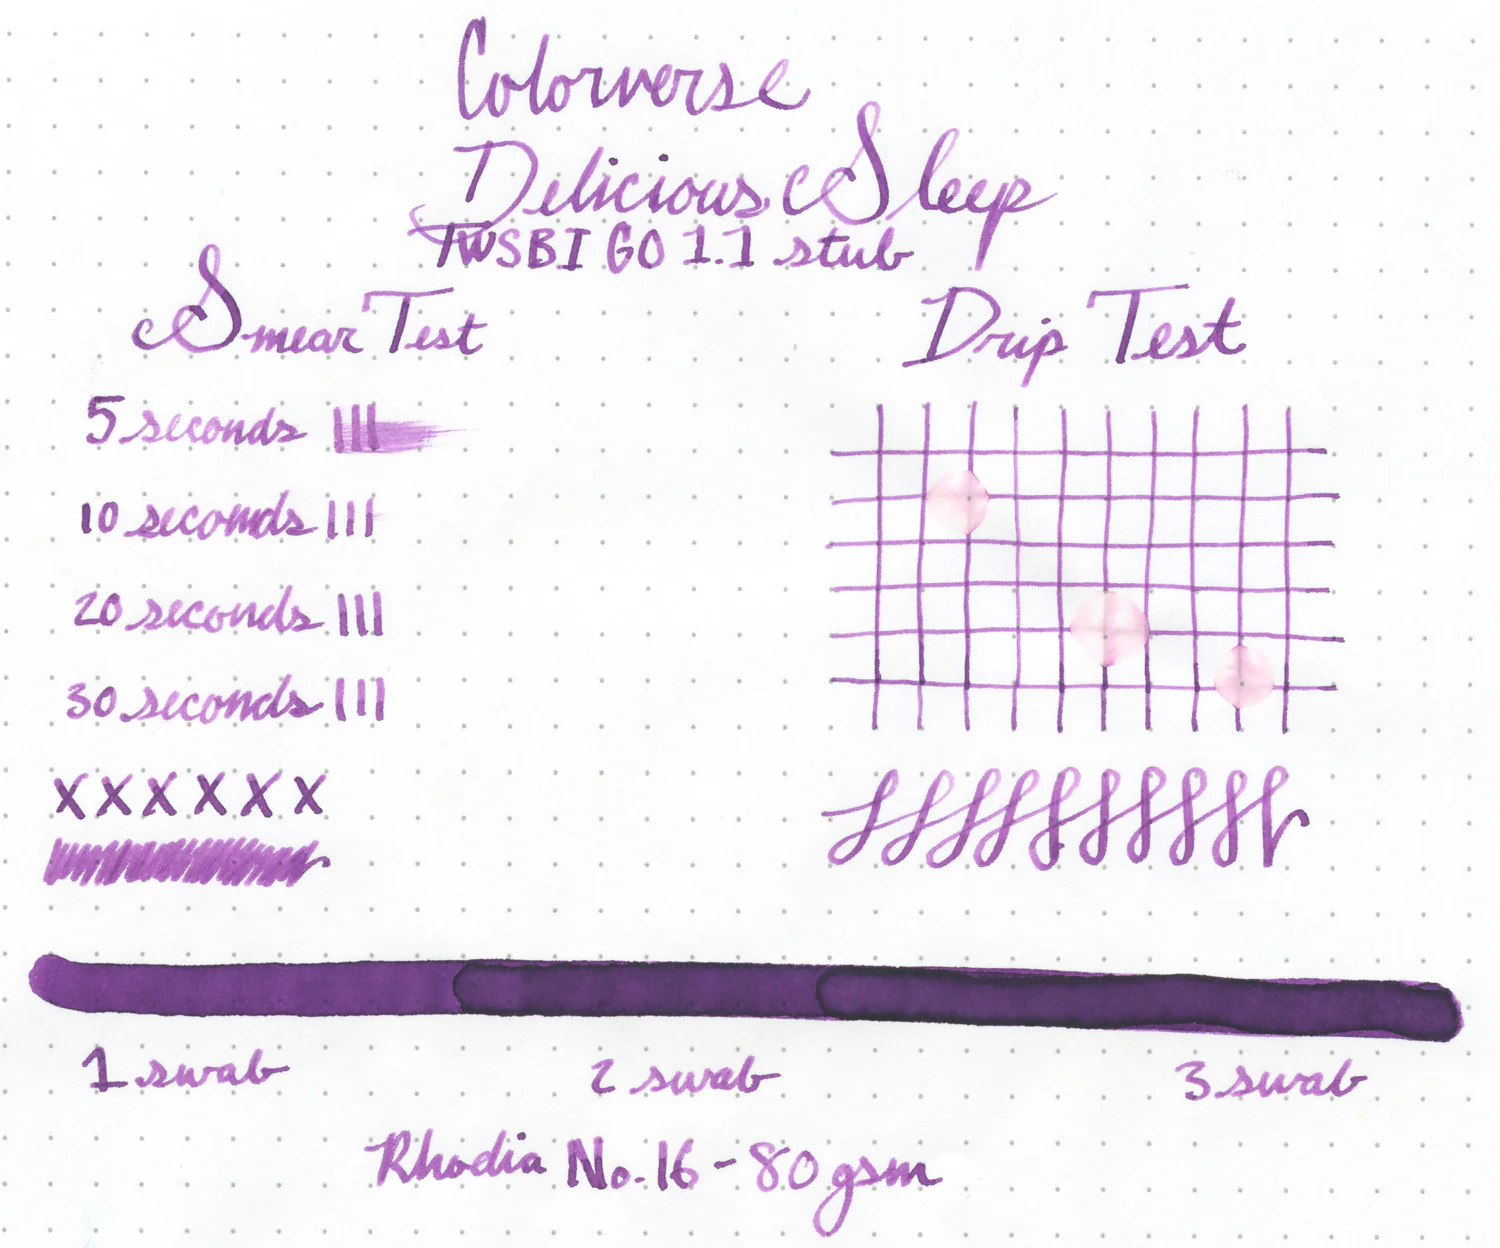 Colorverse
Delicious Sleep
TWSBI GO 1.1 stub
Smear Test
Drip Test
5 seconds
10 seconds
20 seconds
30 seconds
x x x x x x
1 swab
2 swab
3 swab
Rhodia No. 16 - 80 gsm